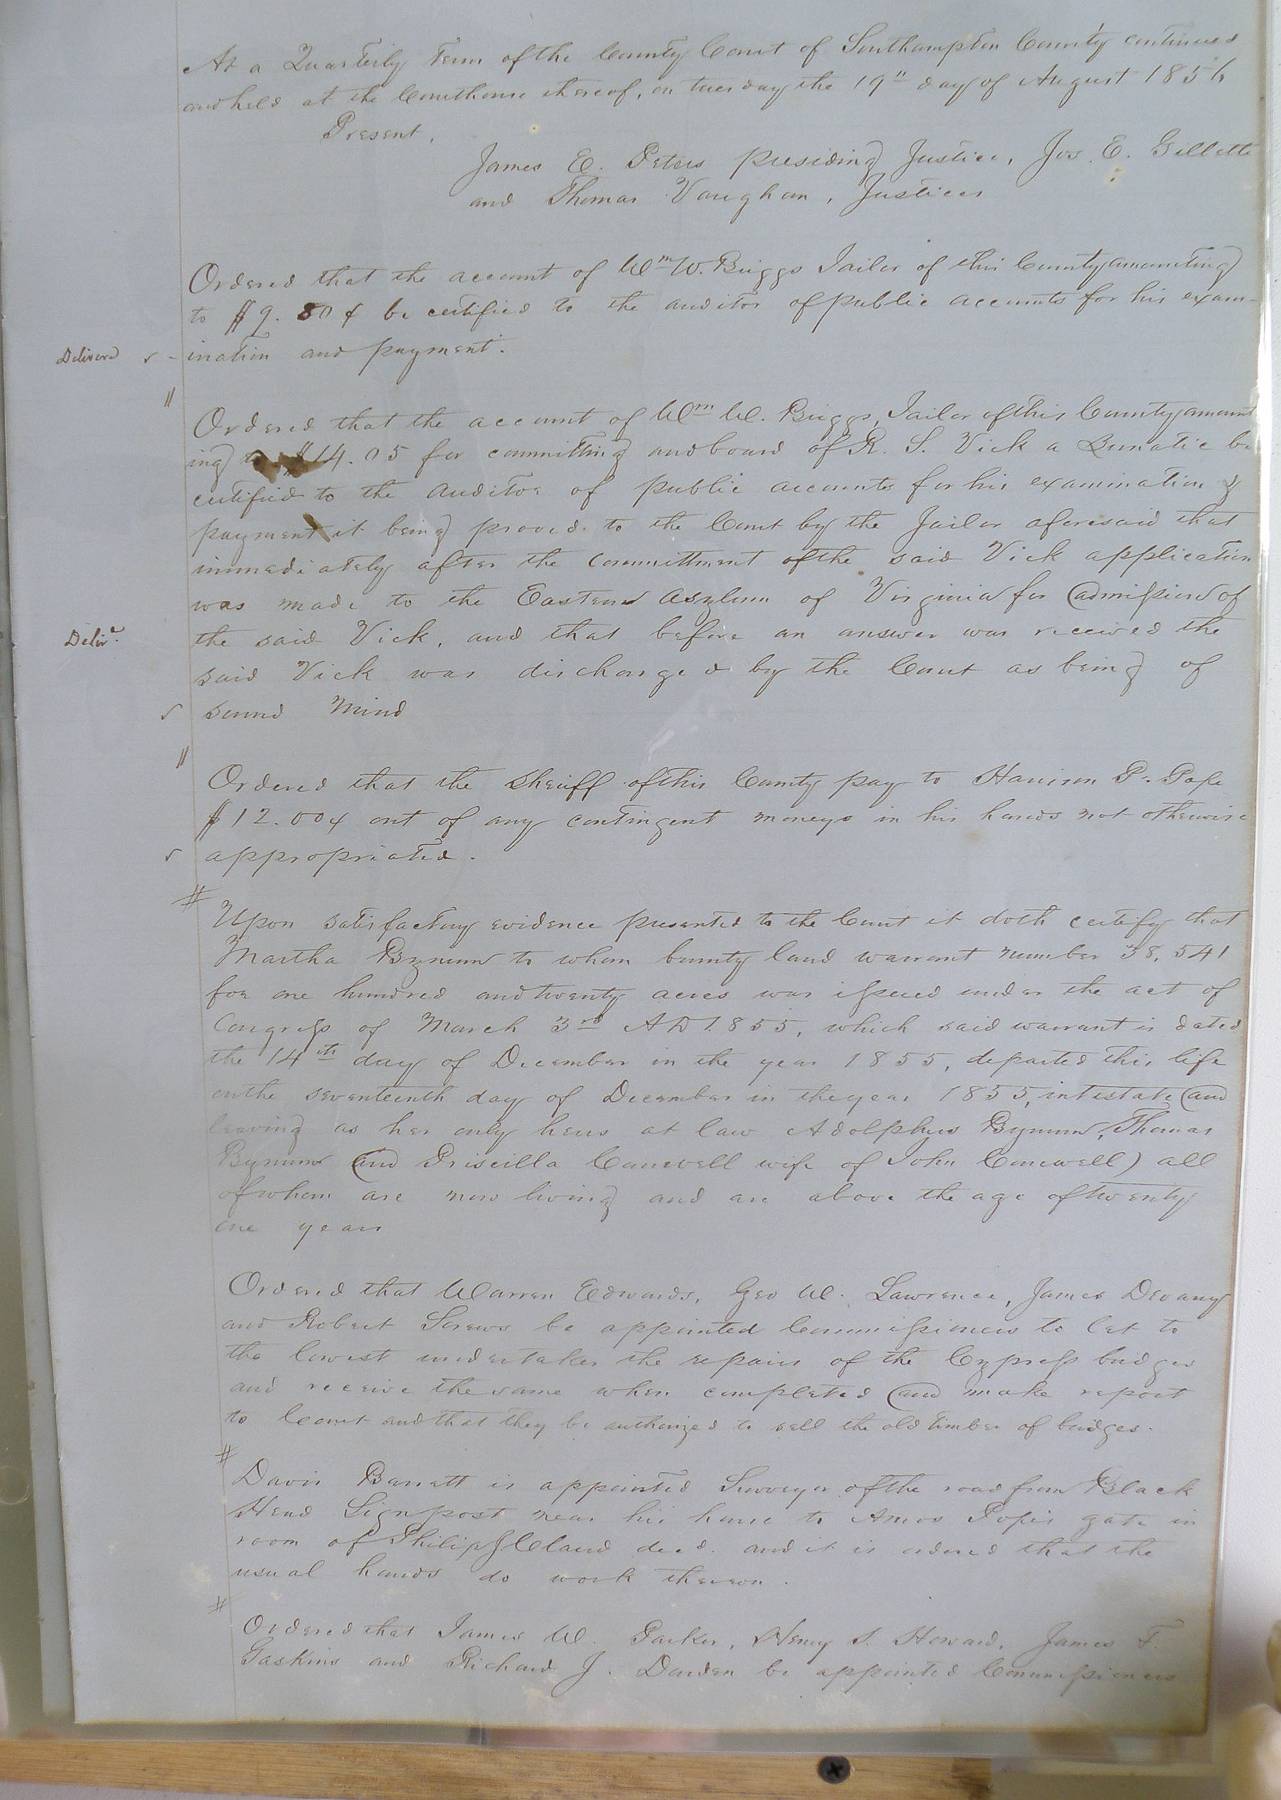 At a Quarterly Term of the County Court of Southampton County continued
and held at the Courthouse thereof, on tuesday the 19" day of August 1856
Present,
James E. Peters presiding Justice, Jos. E. Gillette
and Thomas Vaughan, Justices
Ordered that the account of Wm W. Briggs Jailor of this County amounting
to $9.80¢ be certified to the auditor of public accounts for his exam-
Delivered
ination and payment.
Ordered that the account of Wm W. Briggs, Jailor of this County amount
ing to $14.05 for committing and board of R. S. Vick a Lunatic be
certified to the auditor of public accounts for his examination &
payment it being proved to the Court by the Jailor aforesaid that
immediately after the committment of the said Vick application
was made to the Eastern Asylum of Virginia for admission of
Delivd
the said Vick, and that before an answer was received the
said Vick was discharged by the Court as being of
sound mind
Ordered that the Sheriff of this County pay to Harrison P. Pope
$12.00¢ out of any contingent moneys in his hands not otherwise
appropriated.
Upon satisfactory evidence presented to the Court it doth certify that
Martha Bynum to whom bounty land warrant number 38,541
for one hundred and twenty acres was issued under the act of
Congress of March 3rd AD 1855, which said warrant is dated
the 14th day of December in the year 1855, departed this life
on the seventeenth day of December in the year 1855, intestate and
leaving as her only heirs at law Adolphus Bynum, Thomas
Bynum and Priscilla wife of John all
of whom are now living and are above the age of twenty
one years
Ordered that Warren Edwards, Geo W. Lawrence, James Devany
and Robert Screws be appointed Commissioners to let to
the lowest undertaker the repairs of the Cypress bridges
and receive the same when completed and make report
to Court and that they be authorized to sell the old timber of bridges.
Davis Barratt is appointed Surveyor of the road from Black
Head Signpost near his house to Amos Pope's gate in
room of Philip decd. and it is ordered that the
usual hands do work thereon.
Ordered that James W. Parker, Henry S. Howard, James F.
Gaskins and Richard J. Darden be appointed Commissioners